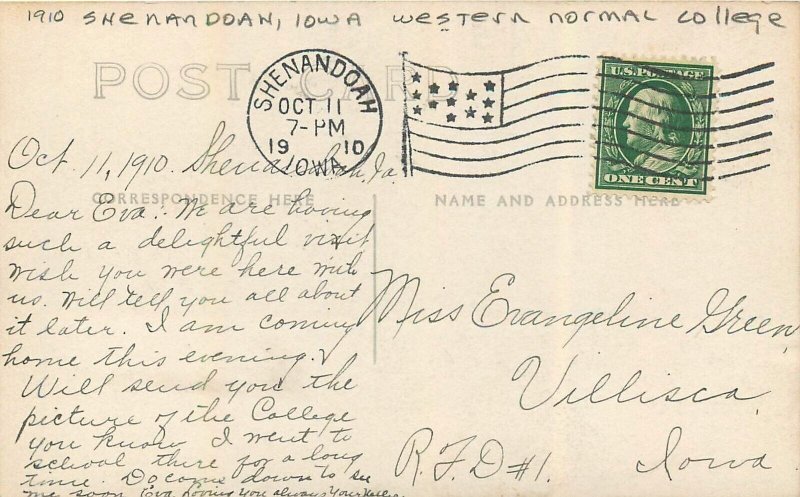 1910 SHENANDOAH, IOWA WESTERN NORMAL COLLEGE
POST CARD
SHENANDOAH
OCT 11
7-PM
1910
IOWA
U.S. POSTAGE
ONE CENT
Oct. 11, 1910. Shenandoah, Ia.
CORRESPONDENCE HERE
NAME AND ADDRESS HERE
Dear Eva: We are having
such a delightful visit
wish you were here with
us. Will tell you all about
it later. I am coming
home this evening.
Will send you the
picture of the College
you know I went to
school there for a long
time. Do come down to see
me soon Eva. Loving you always Your
Miss Evangeline Green,
Villisca,
R.F.D #1. Iowa